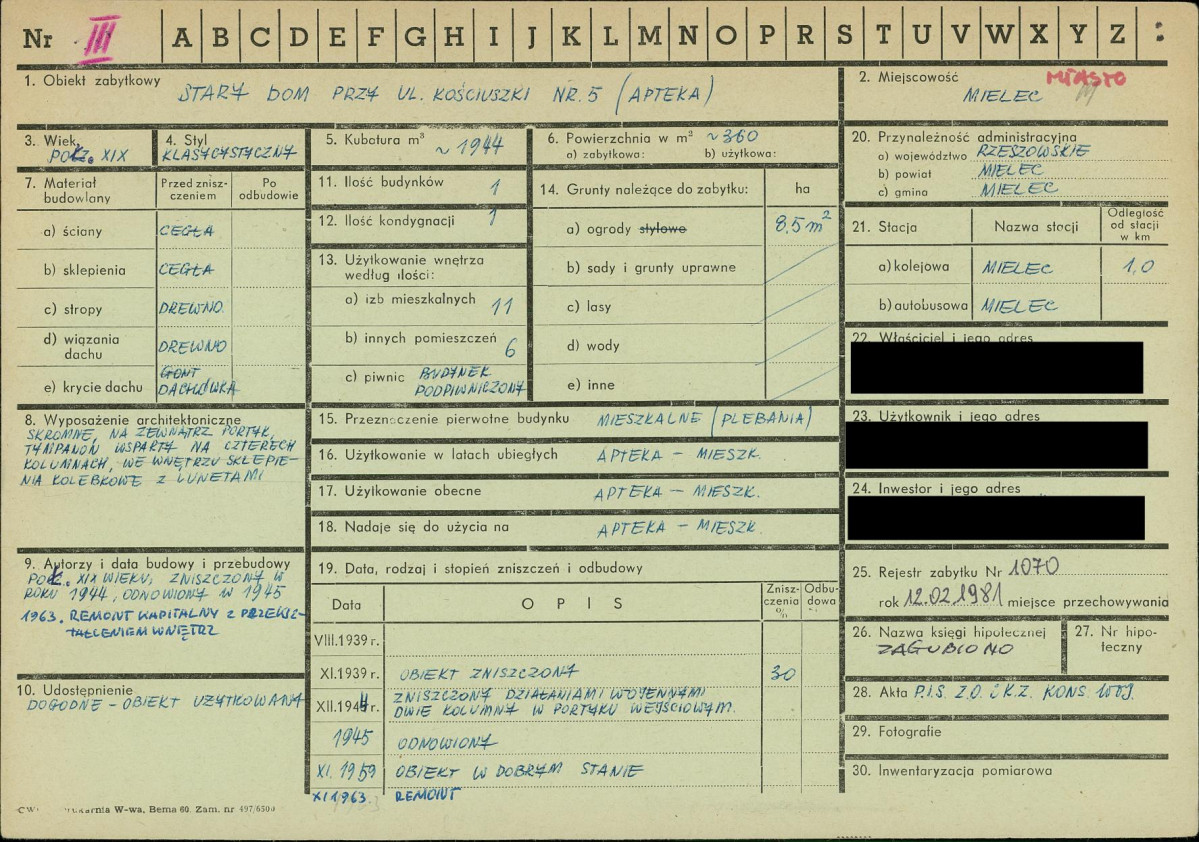 Nr III A B C D E F G H I J K L M N O P R S T U V W X Y Z :
1. Obiekt zabytkowy
STARY DOM PRZY UL. KOŚCIUSZKI NR. 5 (APTEKA)
2. Miejscowość MIASTO
MIELEC
3. Wiek
POŁ. XIX
4. Styl
KLASYCYSTYCZNY
5. Kubatura m³
~ 1944
6. Powierzchnia w m² ~ 360
a) zabytkowa: b) użytkowa:
20. Przynależność administracyjna
a) województwo RZESZOWSKIE
b) powiat MIELEC
c) gmina MIELEC
7. Materiał budowlany
Przed znisz-
czeniem
Po
odbudowie
a) ściany CEGŁA
b) sklepienia CEGŁA
c) stropy DREWNO
d) wiązania
dachu DREWNO
e) krycie dachu GONT
DACHÓWKA
11. Ilość budynków 1
12. Ilość kondygnacji 1
13. Użytkowanie wnętrza
według ilości:
a) izb mieszkalnych 11
b) innych pomieszczeń 6
c) piwnic BUDYNEK
PODPIWNICZONY
14. Grunty należące do zabytku: ha
a) ogrody stylowe 8,5 m²
b) sady i grunty uprawne
c) lasy
d) wody
e) inne
21. Stacja Nazwa stacji Odległość
od stacji
w km
a) kolejowa MIELEC 1,0
b) autobusowa MIELEC
22. Właściciel i jego adres
23. Użytkownik i jego adres
24. Inwestor i jego adres
8. Wyposażenie architektoniczne
SKROMNE, NA ZEWNĄTRZ PORTYK,
TYMPANON WSPARTY NA CZTERECH
KOLUMNACH, WE WNĘTRZU SKLEPIE-
NIA KOLEBKOWE Z LUNETAMI
15. Przeznaczenie pierwotne budynku MIESZKALNE (PLEBANIA)
16. Użytkowanie w latach ubiegłych APTEKA – MIESZK.
17. Użytkowanie obecne APTEKA – MIESZK.
18. Nadaje się do użycia na APTEKA – MIESZK.
9. Autorzy i data budowy i przebudowy
POŁ. XIX WIEKU, ZNISZCZONY W
ROKU 1944, ODNOWIONY W 1945
1963. REMONT KAPITALNY Z PRZEKSZ-
TAŁCENIEM WNĘTRZ
10. Udostępnienie
DOGODNE – OBIEKT UŻYTKOWANY
19. Data, rodzaj i stopień zniszczeń i odbudowy
Data OPIS Znisz-
czenia
% Odbu-
dowa
VIII.1939 r.
XI.1939 r. OBIEKT ZNISZCZONY 30
XII.1944 r. ZNISZCZONY DZIAŁANIAMI WOJENNYMI
DWIE KOLUMNY W PORTYKU WEJŚCIOWYM.
1945 ODNOWIONY
XI. 1959 OBIEKT W DOBRYM STANIE
XI 1963. REMONT
25. Rejestr zabytku Nr 1070
rok 12.02.1981 miejsce przechowywania
26. Nazwa księgi hipotecznej
ZAGUBIONO
27. Nr hipo-
teczny
28. Akta P.I.S. Z.O. i K.Z. KONS. WOJ.
29. Fotografie
30. Inwentaryzacja pomiarowa
Drukarnia W-wa, Bema 60. Zam. nr 497/6500